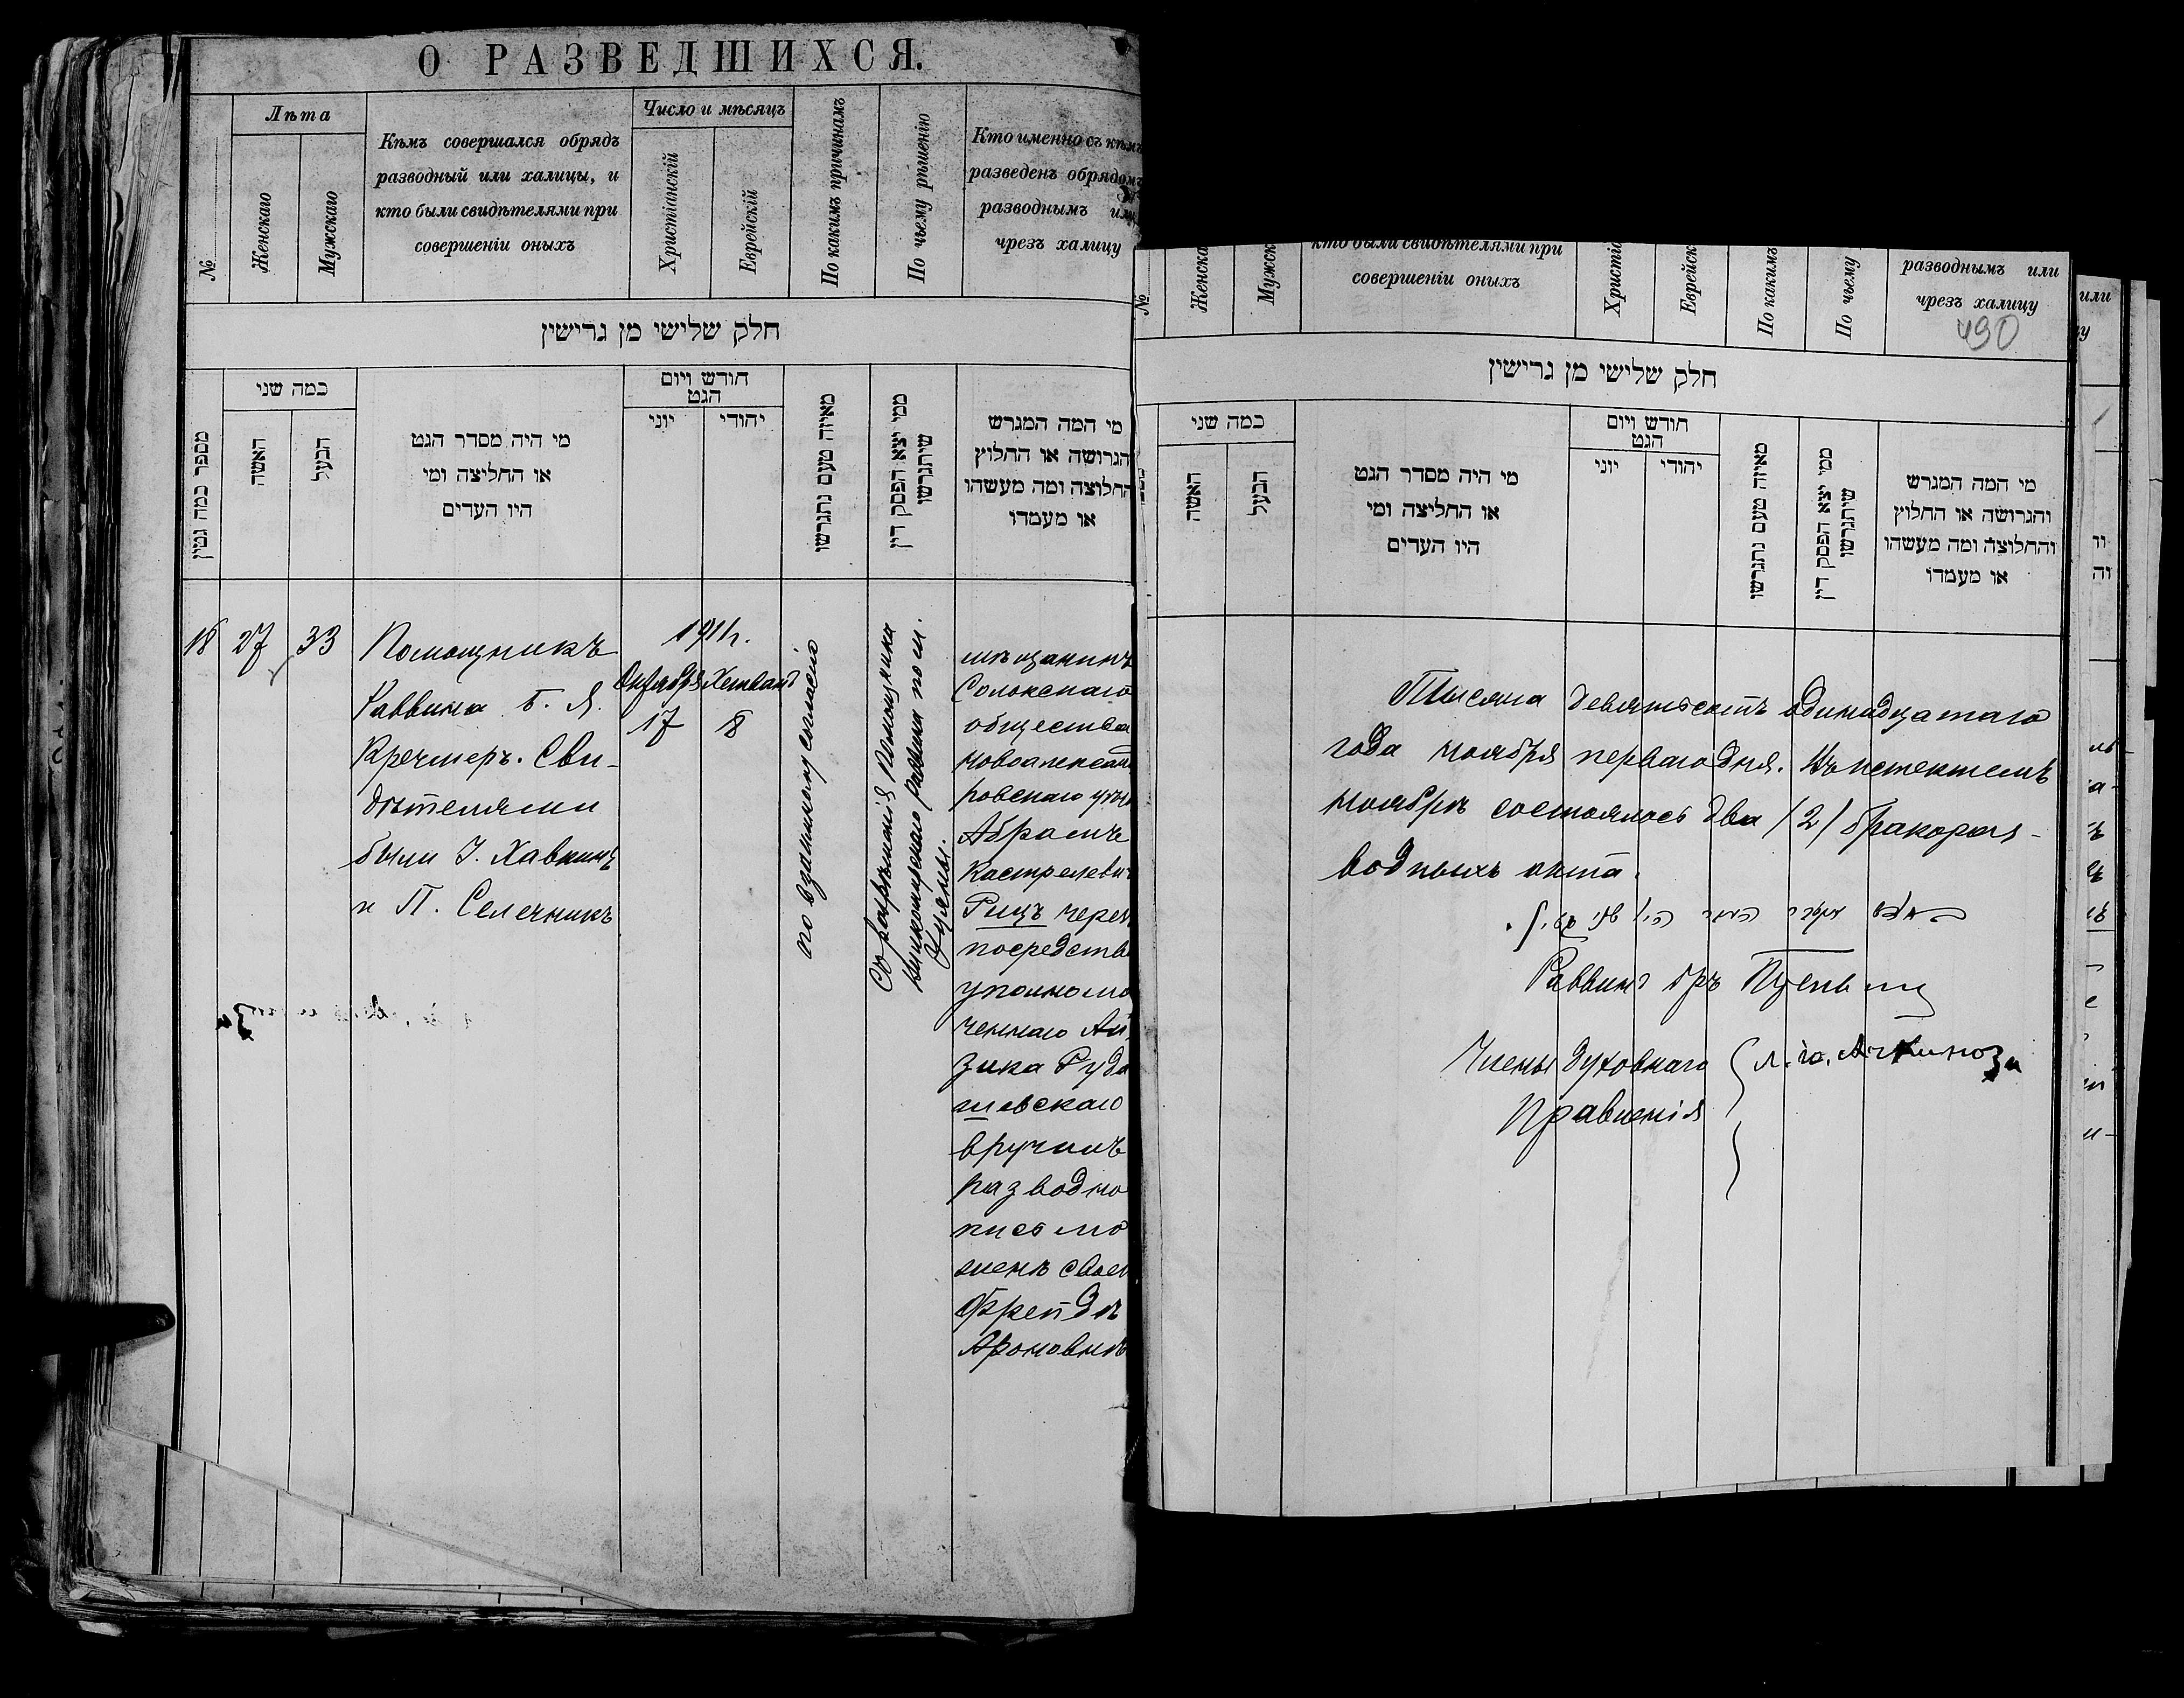 О РАЗВЕДШИХСЯ.
№
Лѣта
Женскаго
Мужскаго
Кѣмъ совершался обрядъ
разводный или халицы, и
кто были свидѣтелями при
совершеніи оныхъ
Число и мѣсяцъ
Христіанскій
Еврейскій
По какимъ причинамъ
По чьему рѣшенію
Кто именно съ кѣмъ
разведенъ обрядомъ
разводнымъ или
чрезъ халицу
חלק שלישי מן גרישין
מספר כמה גטין
כמה שני
האשה
הבעל
מי היה מסדר הגט
או החליצה ומי
היו העדים
חודש ויום
הגט
יוני
יהודי
מאיזה טעם נתגרשו
ממי יצא הפסק דין
שיתגרשו
מי המה המגרש
הגרושה או החלוץ
החלוצה ומה מעשהו
או מעמדו
18
27
33
Помощникъ
Раввина Б. Я.
Кречмеръ. Сви-
дѣтелями
были І. Хавкинъ
и П. Селечникъ
1911 г.
Октября Хешванъ
17 8
по взаимному согласію
Съ разрѣшенія Помощника
раввина по м.
мѣщанинъ
Солокскаго
общества
Новоалексан
ровскаго уѣз
Абрамъ
Кастрелевич
Рицъ черезъ
посредств
уполномо
ченнаго Ай
зика Руда
шевскаго
вручилъ
разводно
письмо
женѣ своей
Фрейдѣ
Ароновнѣ
№
Женска
Мужск
кто были свидѣтелями при
совершеніи оныхъ
Христіа
Еврейск
По какимъ
По чьему
разводнымъ или
чрезъ халицу
490
חלק שלישי מן גרישין
כמה שני
האשה
הבעל
מי היה מסדר הגט
או החליצה ומי
היו העדים
חודש ויום
הגט
יוני
יהודי
מאיזה טעם נתגרשו
ממי יצא הפסק דין
שיתגרשו
מי המה המגרש
והגרושה או החלוץ
והחלוצה ומה מעשהו
או מעמדו
Тысяча девятьсотъ одинадцатаго
года ноября перваго дня. Въ истекшемъ
ноябрѣ состоялось два /2/ бракораз-
водныхъ акта.
Раввинъ
Члены Духовнаго
Правленія